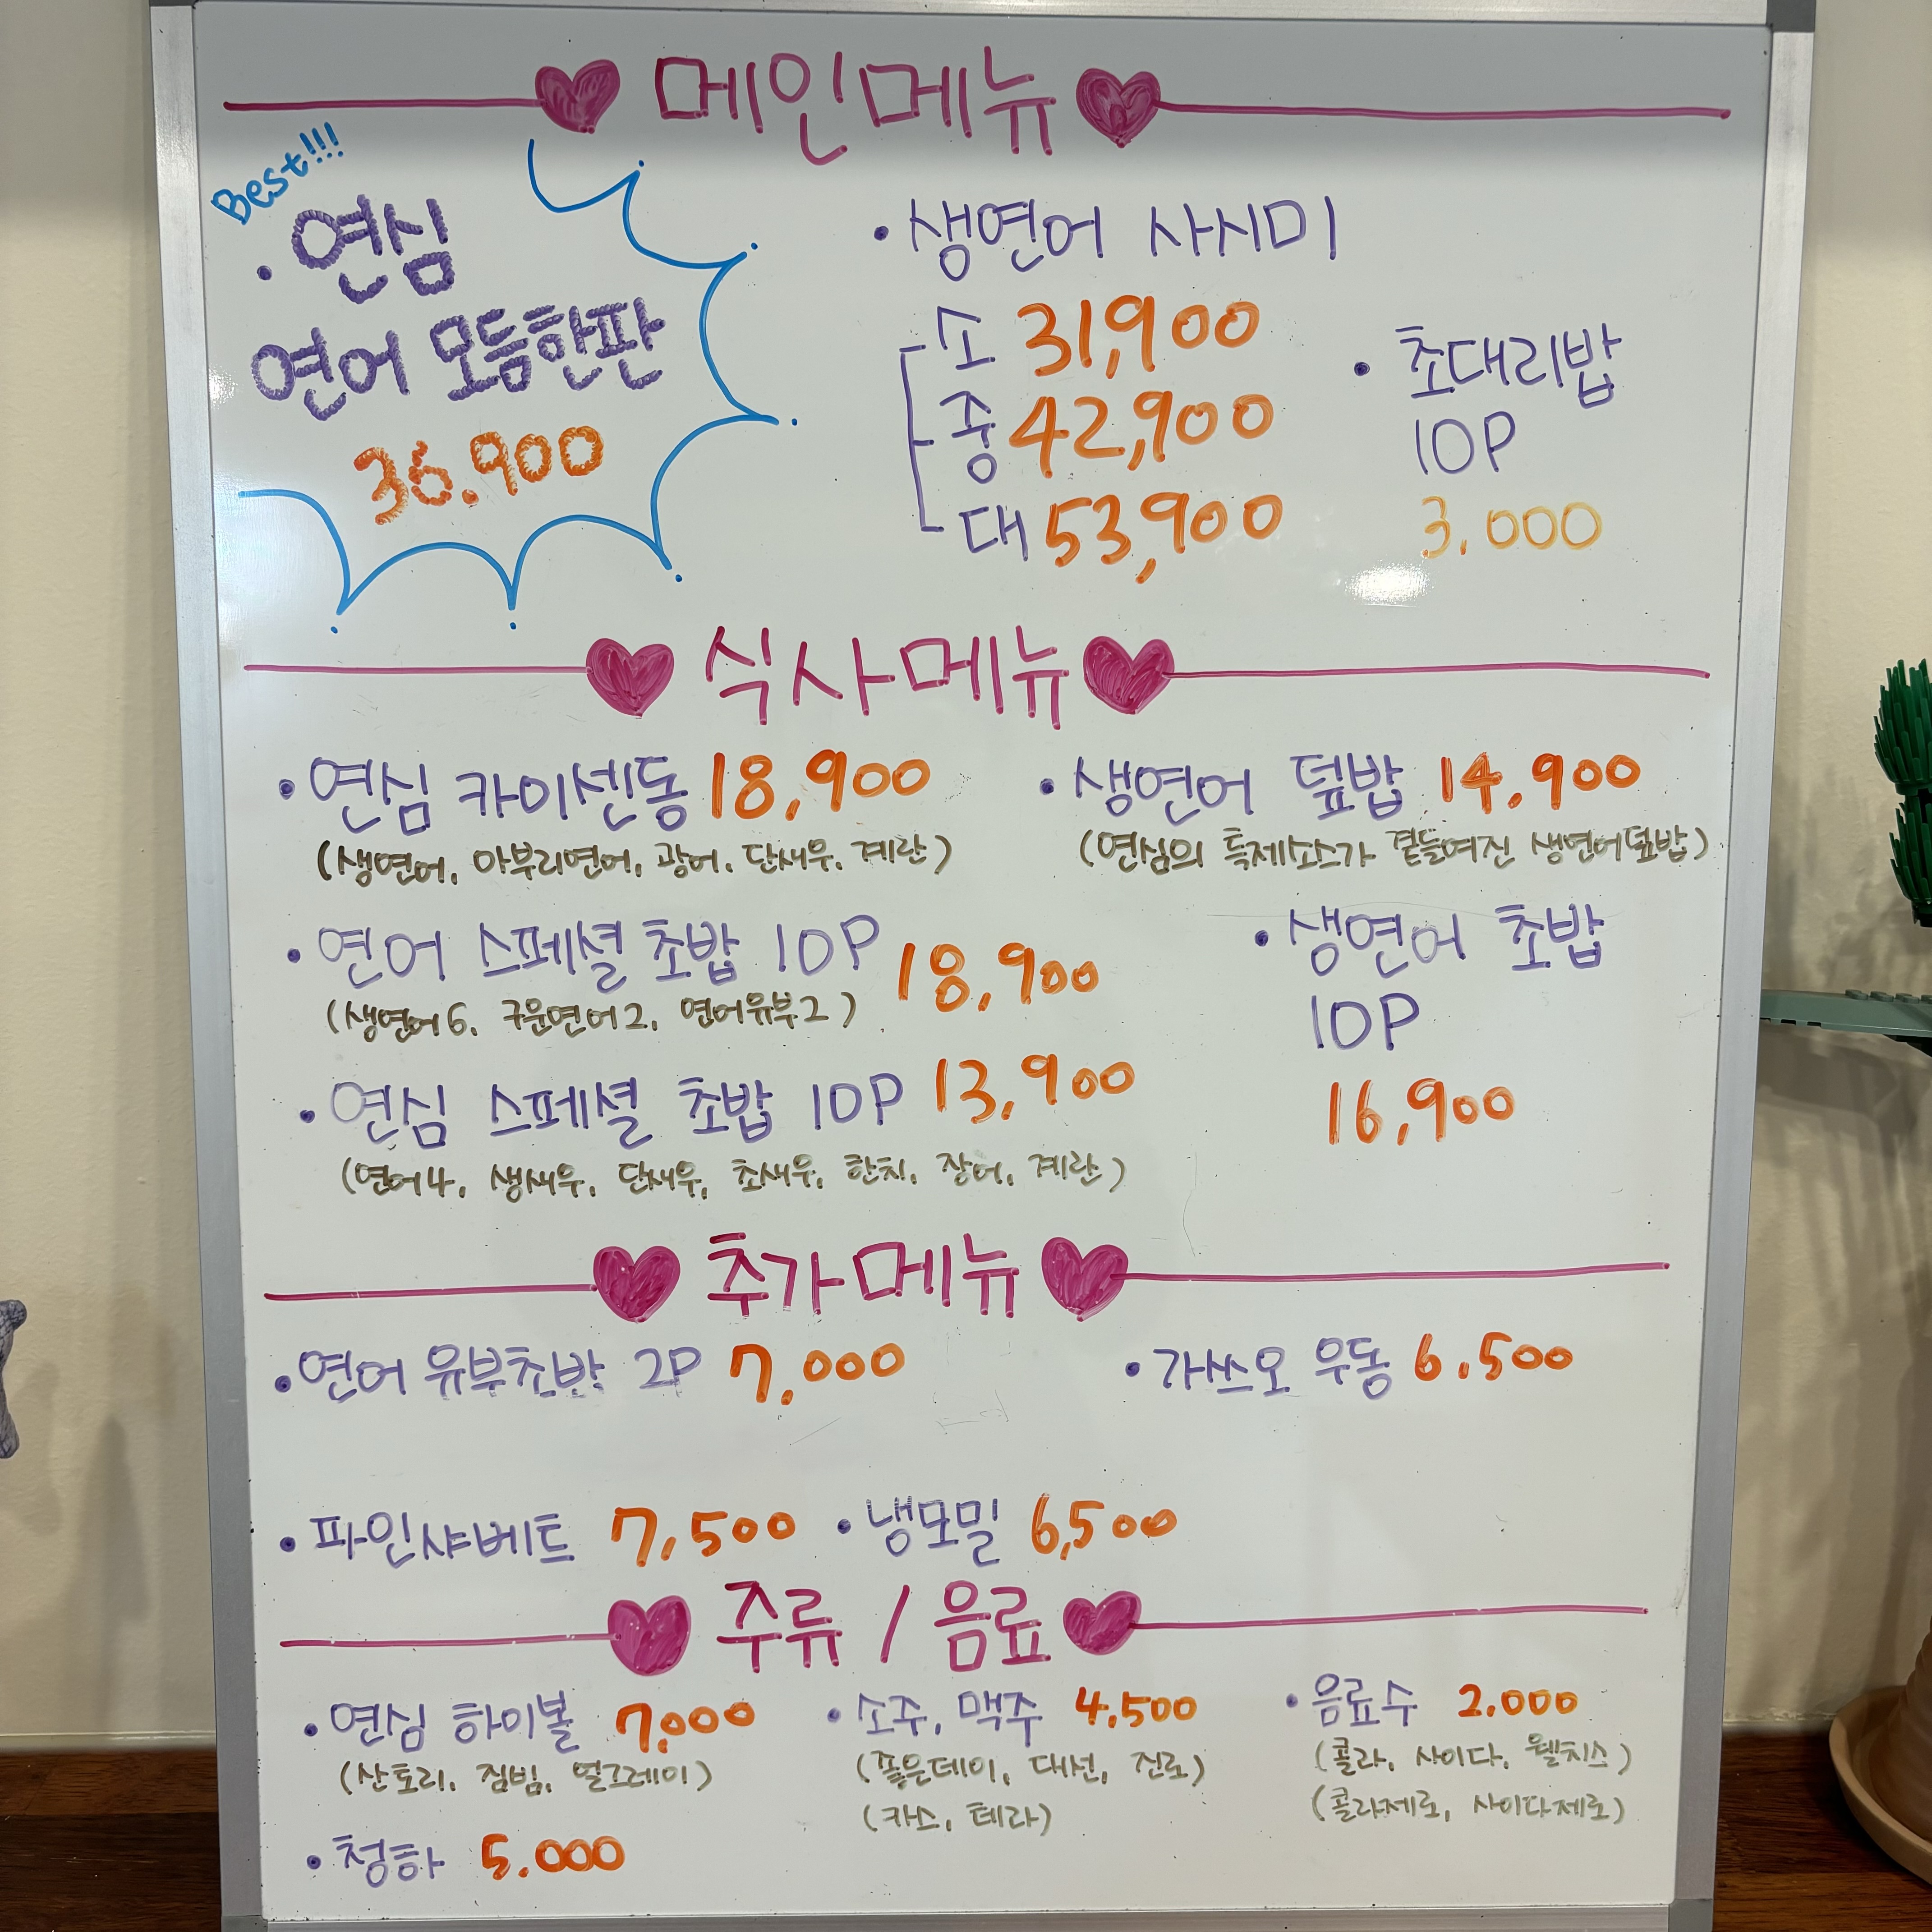 메인메뉴
Best!!!
· 연심
연어 모듬한판
36.900
· 생연어 사시미
소 31,900
중 42,900
대 53,900
· 초대리밥
10P
3.000
식사메뉴
· 연심 카이센동 18,900
(생연어, 아부리연어, 광어, 단새우, 계란)
· 생연어 덮밥 14.900
(연심의 특제소스가 곁들여진 생연어덮밥)
· 연어 스페셜 초밥 10P 18,900
(생연어6, 구운연어2, 연어유부2)
· 생연어 초밥
10P
16,900
· 연심 스페셜 초밥 10P 13,900
(연어4, 생새우, 단새우, 초새우, 한치, 장어, 계란)
추가메뉴
· 연어 유부초밥 2P 7,000
· 가쓰오 우동 6.500
· 파인샤베트 7,500
· 냉모밀 6,500
주류 / 음료
· 연심 하이볼 7,000
(산토리, 짐빔, 얼그레이)
· 소주, 맥주 4,500
(좋은데이, 대선, 진로)
(카스, 테라)
· 음료수 2.000
(콜라, 사이다, 웰치스)
(콜라제로, 사이다제로)
· 청하 5.000